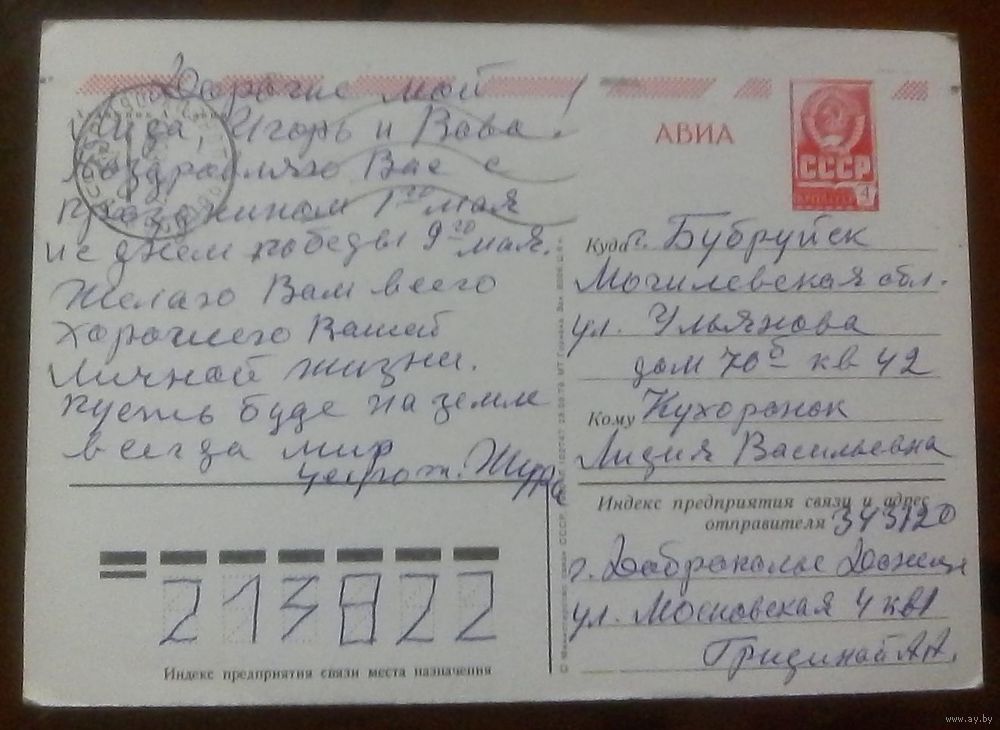 Дорогие мои
Лида, Игорь и Вова!
Поздравляю Вас с
праздником 1го мая
и с днем победы 9го мая.
Желаю Вам всего
хорошего Вашей
личной жизни.
пусть буде на земле
всегда мир
АВИА
СССР
4
Куда г. Бубруйск
Могилевская обл.
ул. Ульянова
дом 70б кв 42
Кому Кухоронок
Лидия Васильевна
Индекс предприятия связи и адрес
отправителя 343120
г. Доброполье Донецк
ул. Московская 4 кв1
Грициной А А.
213822
Индекс предприятия связи места назначения
www.ay.by